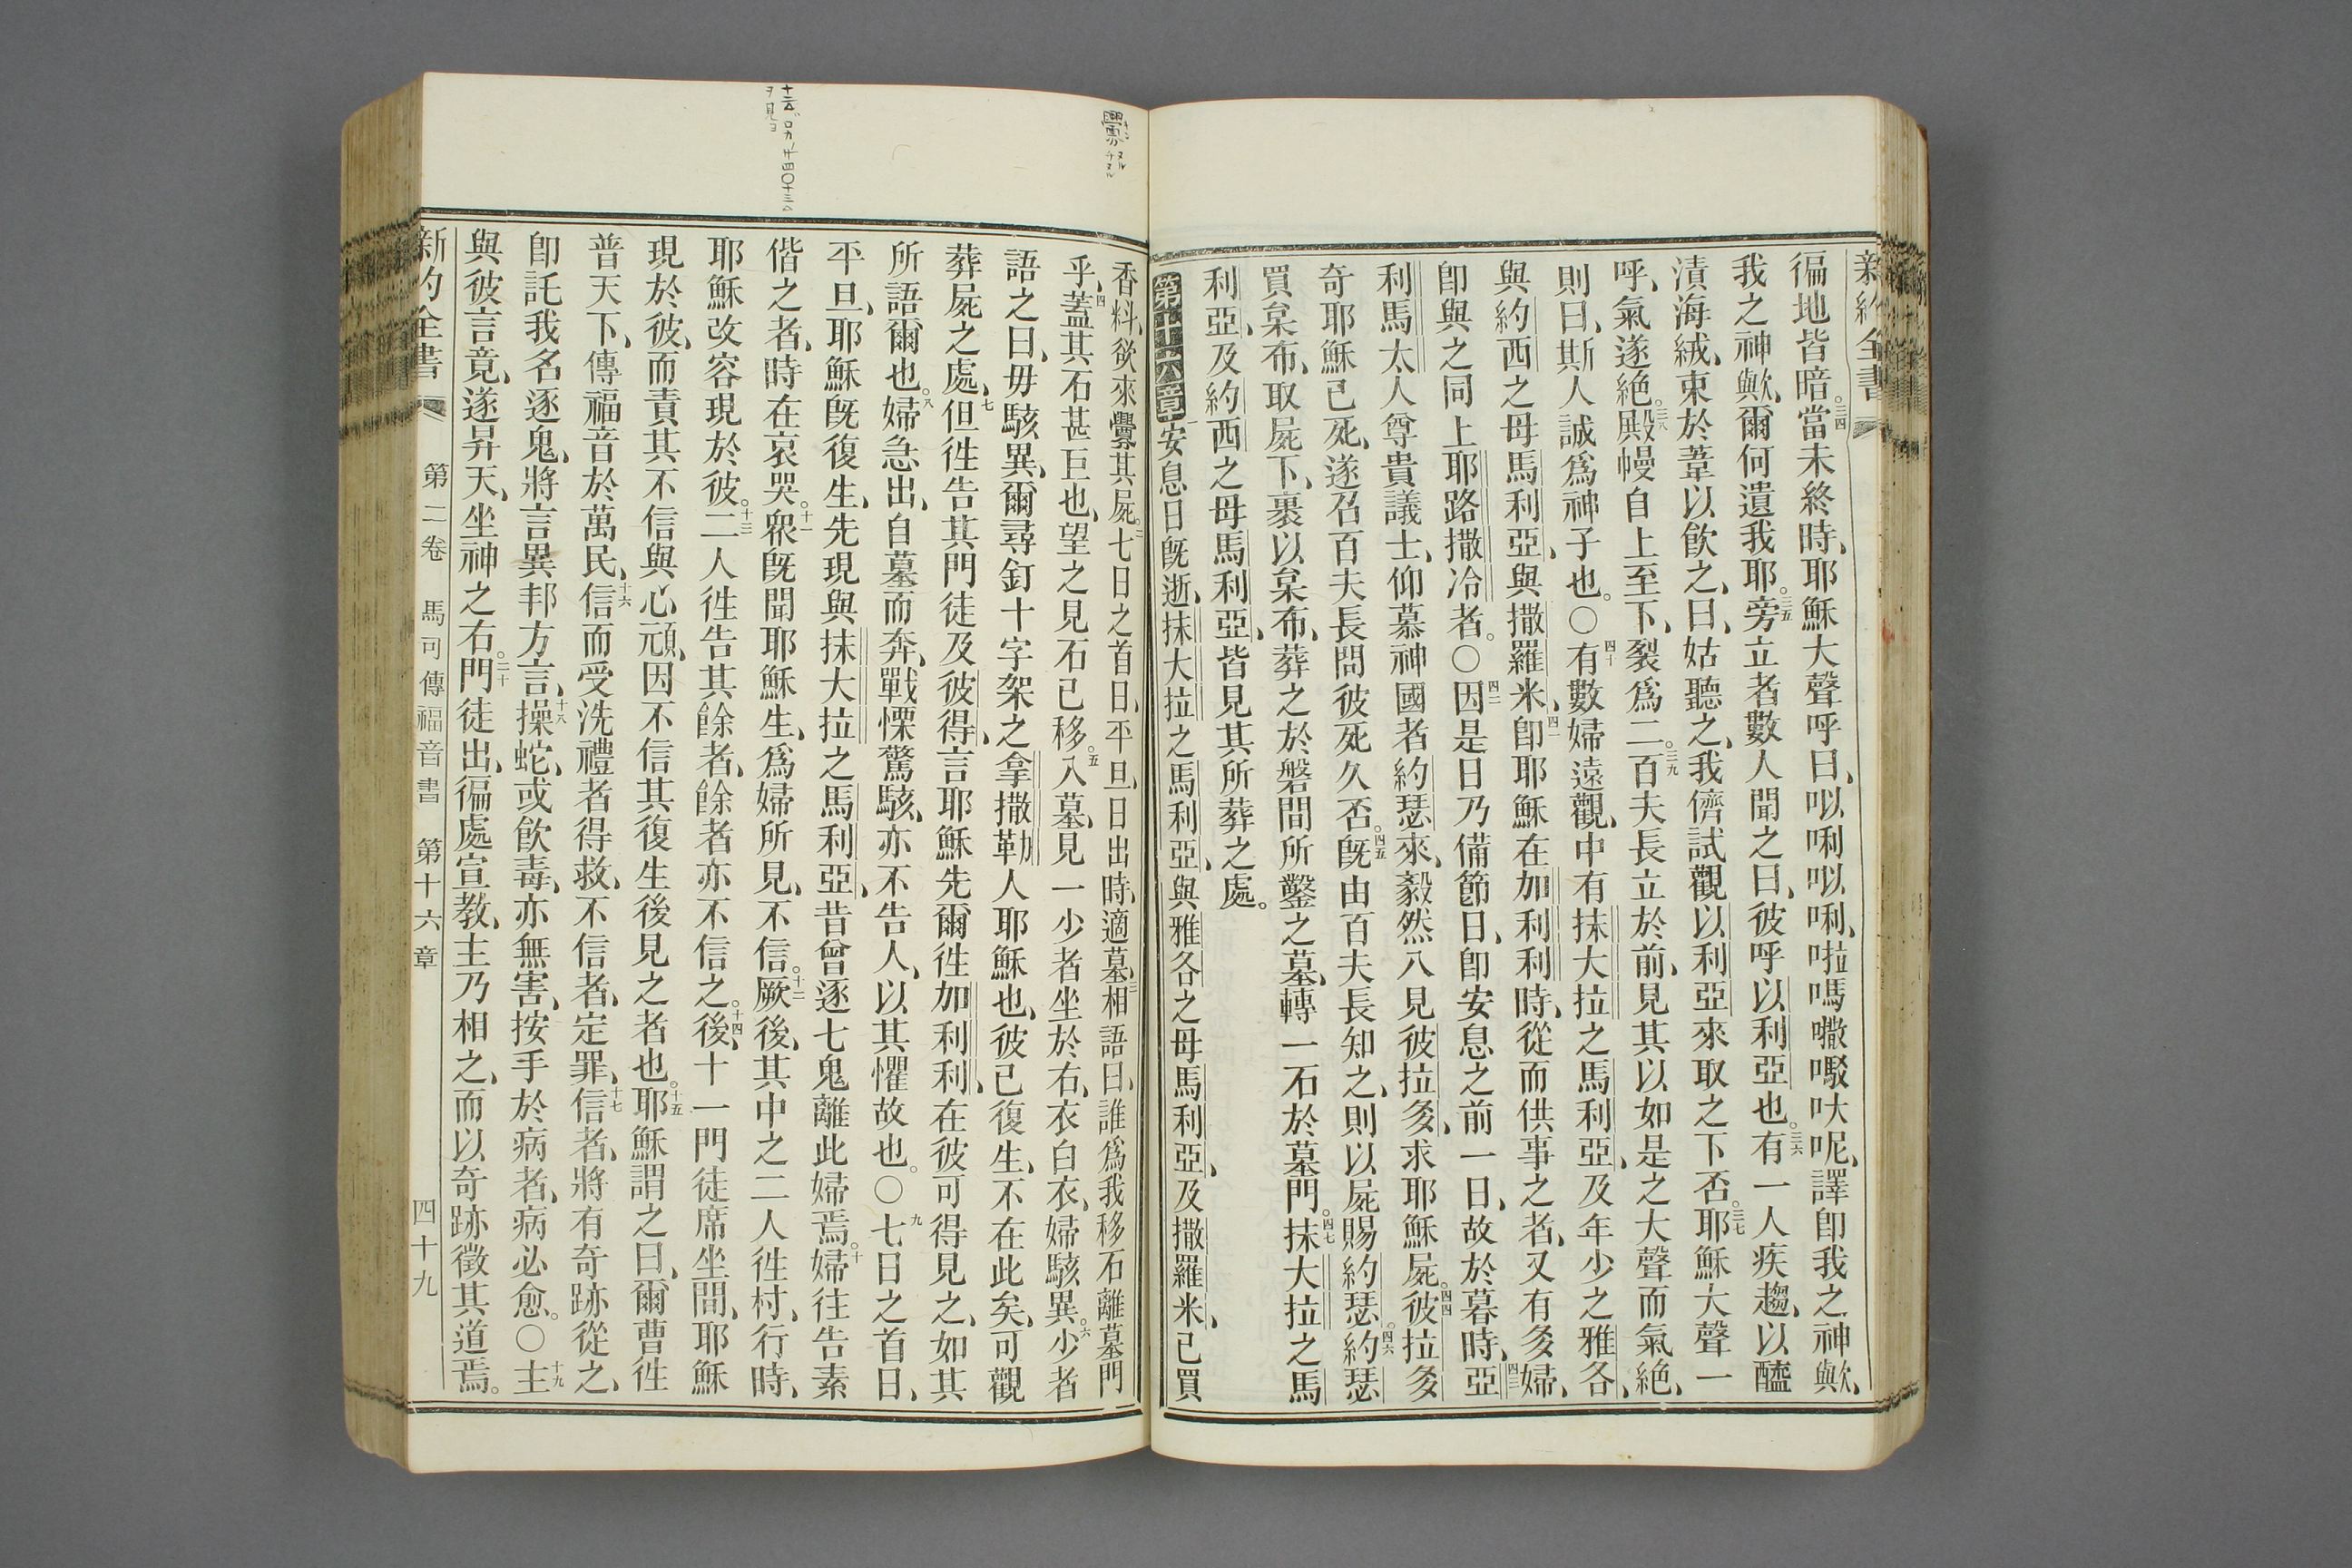 徧地皆暗。三四當未終時、耶穌大聲呼曰、㕥唎㕥唎、啦嗎㘔𠵽呔呢、譯卽我之神歟、
我之神歟、爾何遺我耶。三五旁立者數人聞之曰、彼呼以利亞也。三六有一人疾趨、以醯
漬海絨、束於葦以飮之、曰、姑聽之、我儕試觀以利亞來取之下否。三七耶穌大聲一
呼、氣遂絕。三八殿幔自上至下、裂爲二。三九百夫長立於前、見其以如是之大聲而氣絕、
則曰、斯人誠爲神子也。〇四十有數婦遠觀、中有抹大拉之馬利亞、及年少之雅各、
與約西之母馬利亞、與撒羅米、四一卽耶穌在加利利時、從而供事之者、又有多婦、
卽與之同上耶路撒冷者。〇四二因是日乃備節日、卽安息之前一日、故於暮時、四三亞
利馬太人尊貴議士、仰慕神國者約瑟來、毅然入見彼拉多、求耶穌屍。四四彼拉多
奇耶穌已死、遂召百夫長問彼死久否。四五旣由百夫長知之、則以屍賜約瑟。四六約瑟
買枲布、取屍下、裹以枲布、葬之於磐間所鑿之墓、轉一石於墓門。四七抹大拉之馬
利亞、及約西之母馬利亞、皆見其所葬之處。
第十六章 一安息日旣逝、抹大拉之馬利亞、與雅各之母馬利亞、及撒羅米、已買
香料、欲來釁其屍。二七日之首日、平旦、日出時、適墓、三相語曰、誰爲我移石離墓門
乎、四蓋其石甚巨也、望之見石已移。五入墓、見一少者坐於右、衣白衣、婦駭異。六少者
語之曰、毋駭異、爾尋釘十字架之拿撒勒人耶穌也、彼已復生、不在此矣、可觀
葬屍之處、七但徃告其門徒及彼得、言耶穌先爾徃加利利、在彼可得見之、如其
所語爾也。八婦急出、自墓而奔、戰慄驚駭、亦不告人、以其懼故也。〇九七日之首日、
平旦、耶穌旣復生、先現與抹大拉之馬利亞、昔曾逐七鬼離此婦焉。十婦往告素
偕之者、時在哀哭。十一衆旣聞耶穌生、爲婦所見、不信。十二厥後、其中之二人徃村、行時、
耶穌改容現於彼。十三二人徃告其餘者、餘者亦不信之。十四後、十一門徒席坐間、耶穌
現於彼、而責其不信與心頑、因不信其復生後見之者也。十五耶穌謂之曰、爾曹徃
普天下、傳福音於萬民、十六信而受洗禮者得救、不信者、定罪、十七信者、將有奇跡從之、
卽託我名逐鬼、將言異邦方言、十八操蛇、或飮毒、亦無害、按手於病者、病必愈。〇十九主
與彼言竟、遂昇天、坐神之右。二十門徒出、徧處宣敎、主乃相之、而以奇跡徵其道焉。
新約全書 第二卷 馬可傳福音書 第十六章 四十九